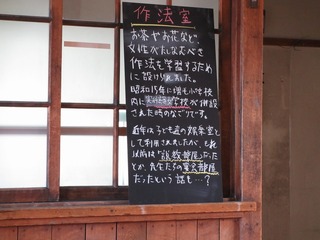 作法室
お茶やお花など、
女性がたしなむべき
作法を学習するため
に設けられました。
昭和15年に
内に 学校が併設
された時のなごりで〜す。
近年は子ども達の
として利用されましたが、それ
以前は「説教部屋」だった
とか、先生たちの宴会部屋
だったという話も…?